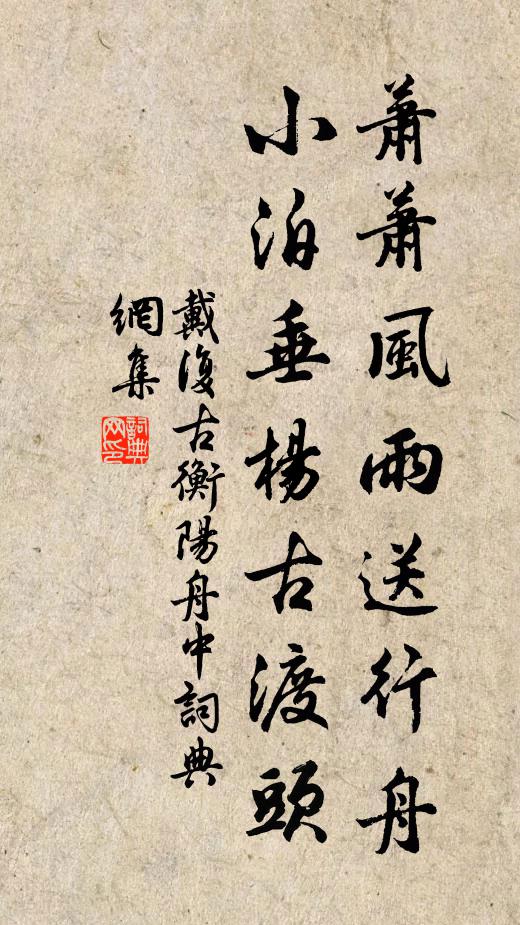 蕭蕭風雨送行舟
小泊垂楊古渡頭
戴復古衡陽舟中詞典
網集
詞典網印